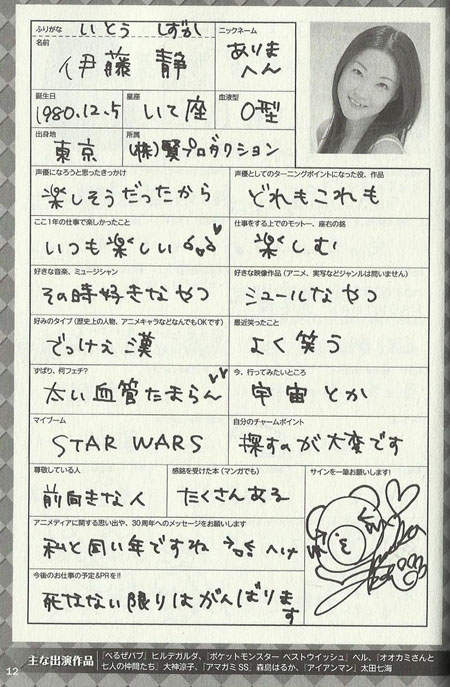 ふりがな いとう しずか
ニックネーム
名前 伊藤 静
ありま
へん
誕生日
星座
血液型
1980.12.5
いて座
O型
出身地
所属
東京
(株)賢プロダクション
声優になろうと思ったきっかけ
声優としてのターニングポイントになった役、作品
楽しそうだったから
どれもこれも
ここ1年の仕事で楽しかったこと
仕事をする上でのモットー、座右の銘
いつも楽しい
楽しむ
好きな音楽、ミュージシャン
好きな映像作品(アニメ、実写などジャンルは問いません)
その時好きなやつ
シュールなやつ
好みのタイプ(歴史上の人物、アニメキャラなどなんでもOKです)
最近笑ったこと
でっけぇ漢
よく笑う
ずばり、何フェチ?
今、行ってみたいところ
太い血管たまらん
宇宙とか
マイブーム
自分のチャームポイント
STAR WARS
探すのが大変です
尊敬している人
感銘を受けた本(マンガでも)
サインを一筆お願いします!
前向きな人
たくさんある
アニメディアに関する思い出や、30周年へのメッセージをお願いします
私と同い年ですね
今後のお仕事の予定&PRを!!
死なない限りはがんばります
主な出演作品
『べるぜバブ』ヒルデガルダ、『ポケットモンスター ベストウイッシュ』ベル、『オオカミさんと
七人の仲間たち』大神涼子、『アマガミSS』森島はるか、『アイアンマン』太田七海
12